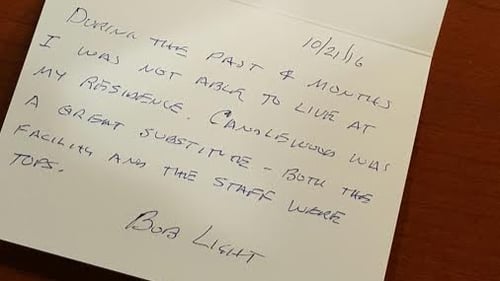 10/21/16
DURING THE PAST 4 MONTHS
I WAS NOT ABLE TO LIVE AT
MY RESIDENCE. CANDLEWOOD WAS
A GREAT SUBSTITUTE - BOTH THE
FACILITY AND THE STAFF WERE
TOPS.
BOB LIGHT